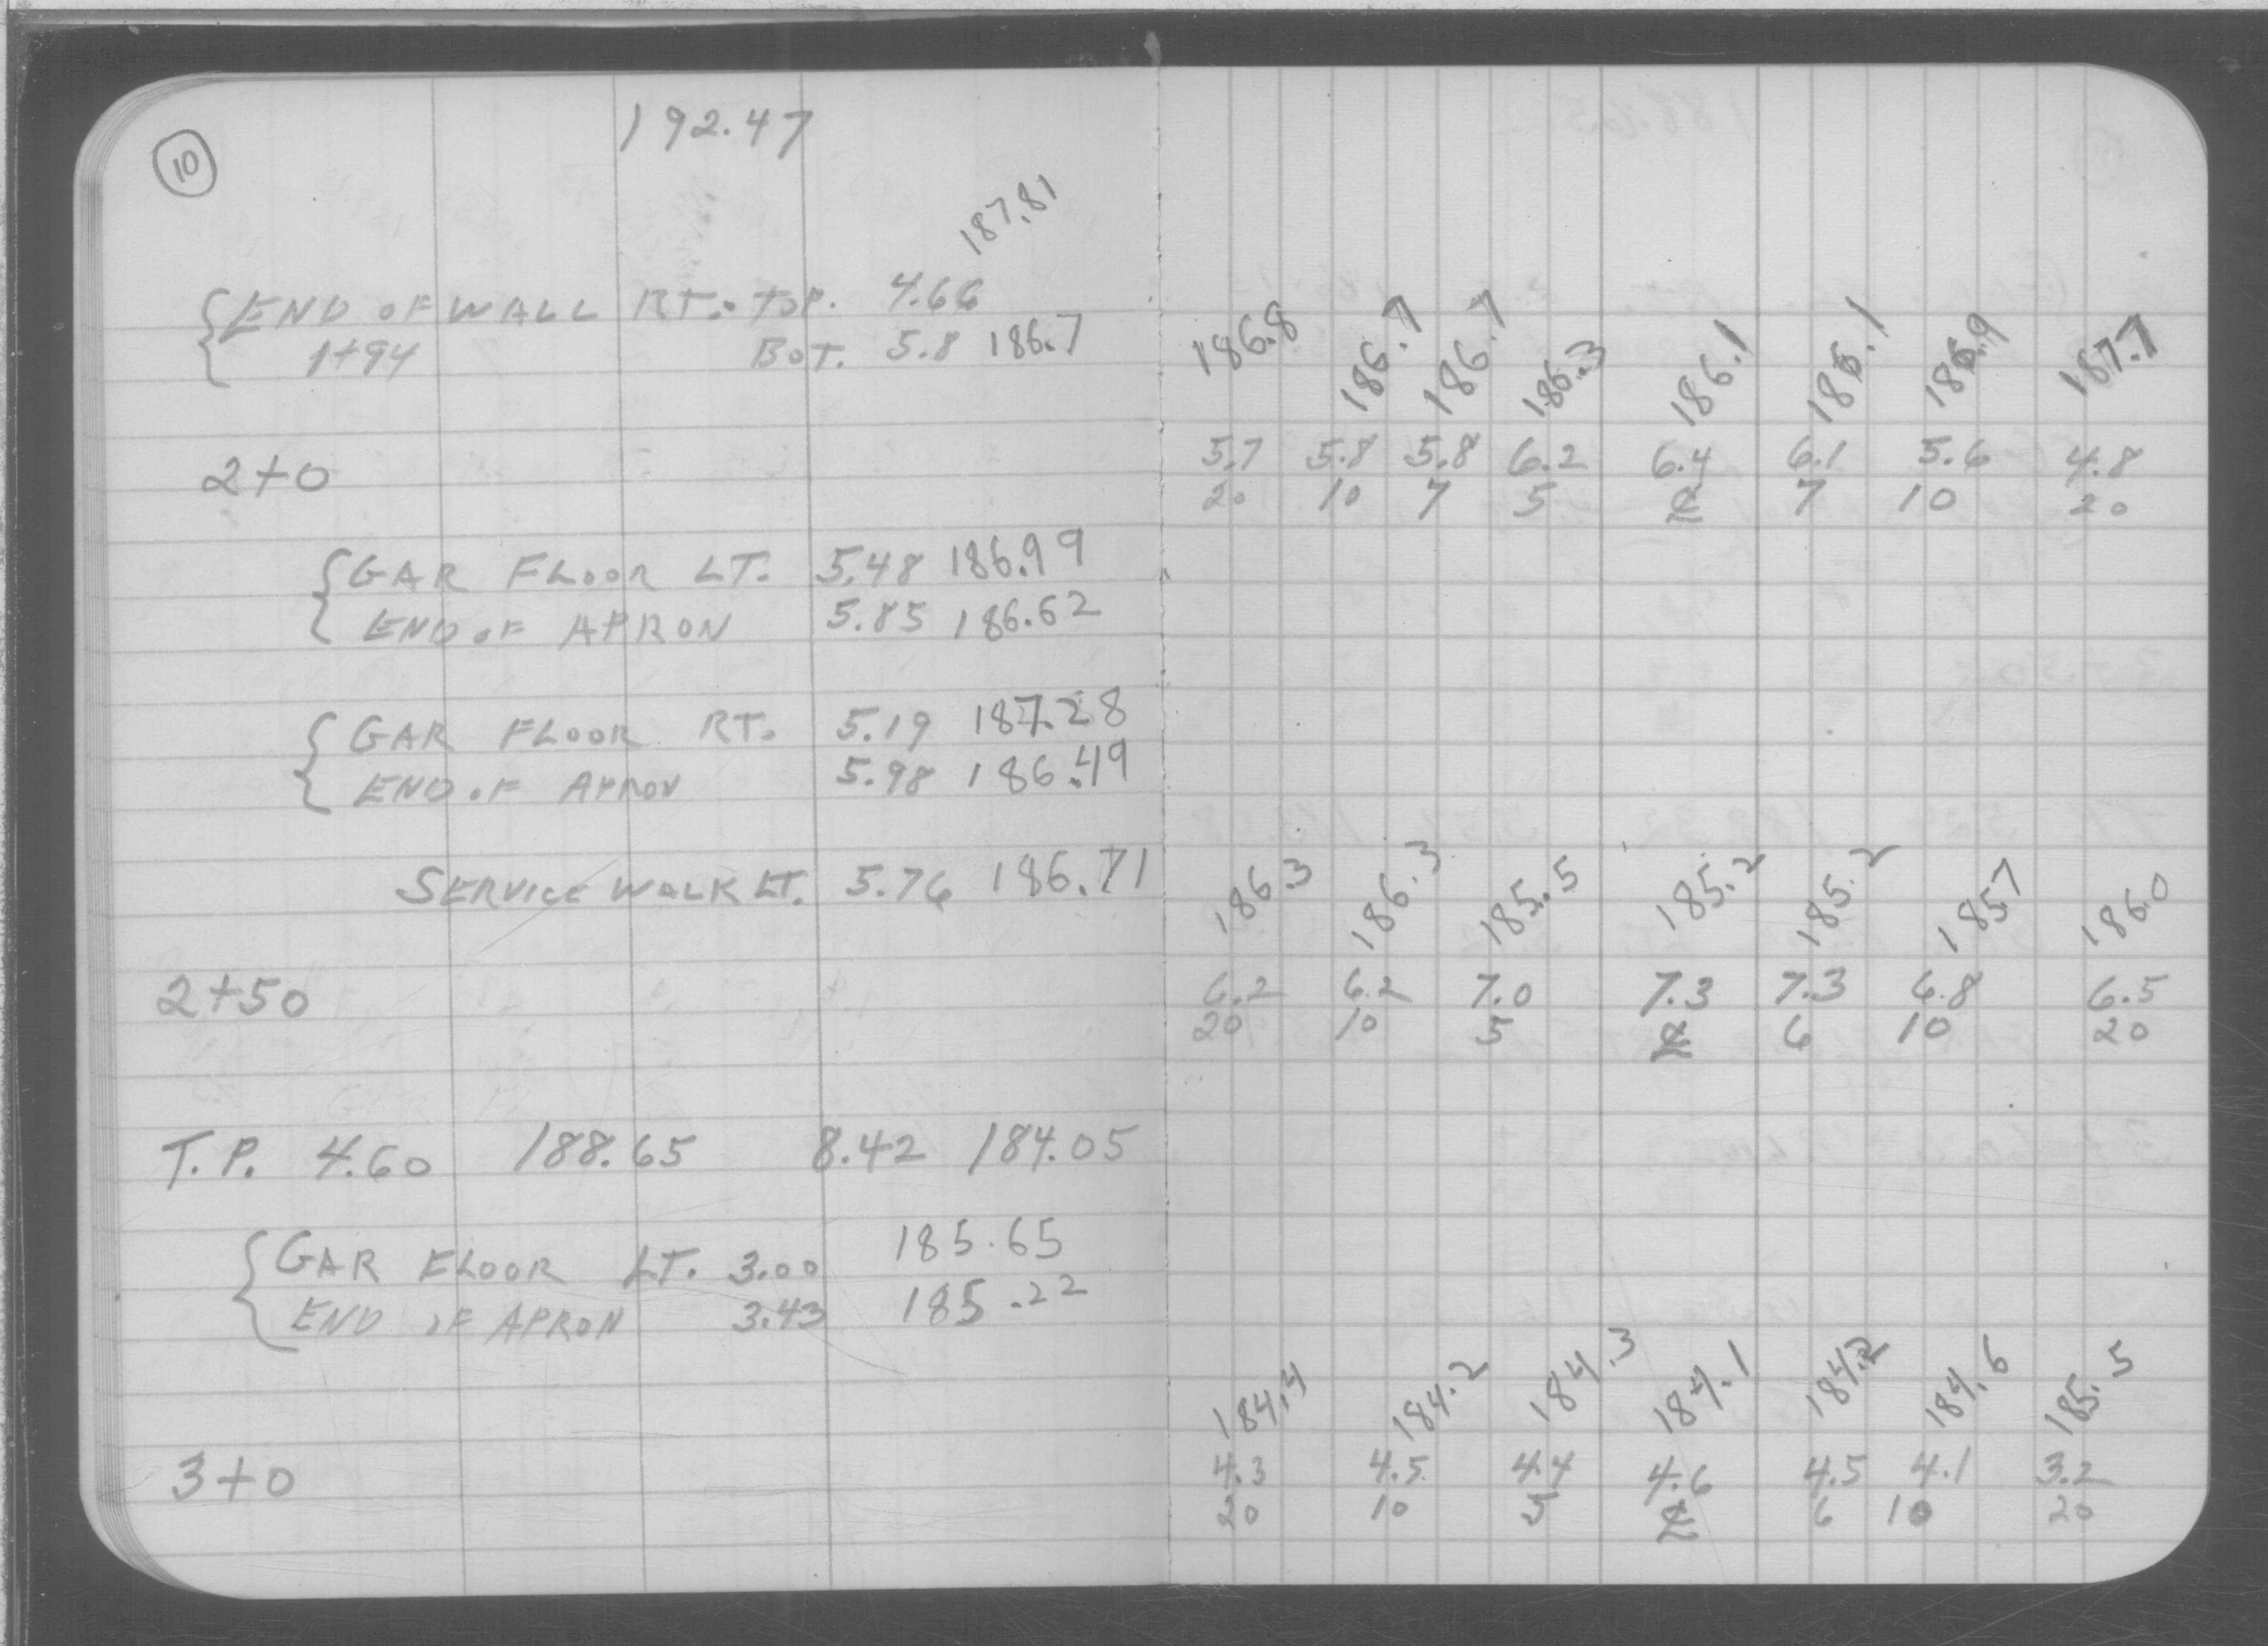 10
192.47
187.81
{END OF WALL RT. TOP. 4.66
1+94 BOT. 5.8 186.7
186.8 186.7 186.7 186.3 186.1 186.1 186.9 187.7
5.7 5.8 5.8 6.2 6.4 6.1 5.6 4.8
2+0
20 10 7 5 ℄ 7 10 20
{GAR FLOOR LT. 5.48 186.99
END OF APRON 5.85 186.62
{GAR FLOOR RT. 5.19 187.28
END OF APRON 5.98 186.49
SERVICE WALK LT. 5.76 186.71
186.3 186.3 185.5 185.2 185.2 185.7 186.0
2+50 6.2 6.2 7.0 7.3 7.3 6.8 6.5
20 10 5 ℄ 6 10 20
T.P. 4.60 188.65 8.42 184.05
{GAR FLOOR LT. 3.00 185.65
END OF APRON 3.43 185.22
184.4 184.2 184.3 184.1 184.2 184.6 185.5
3+0 4.3 4.5 4.4 4.6 4.5 4.1 3.2
20 10 5 ℄ 6 10 20